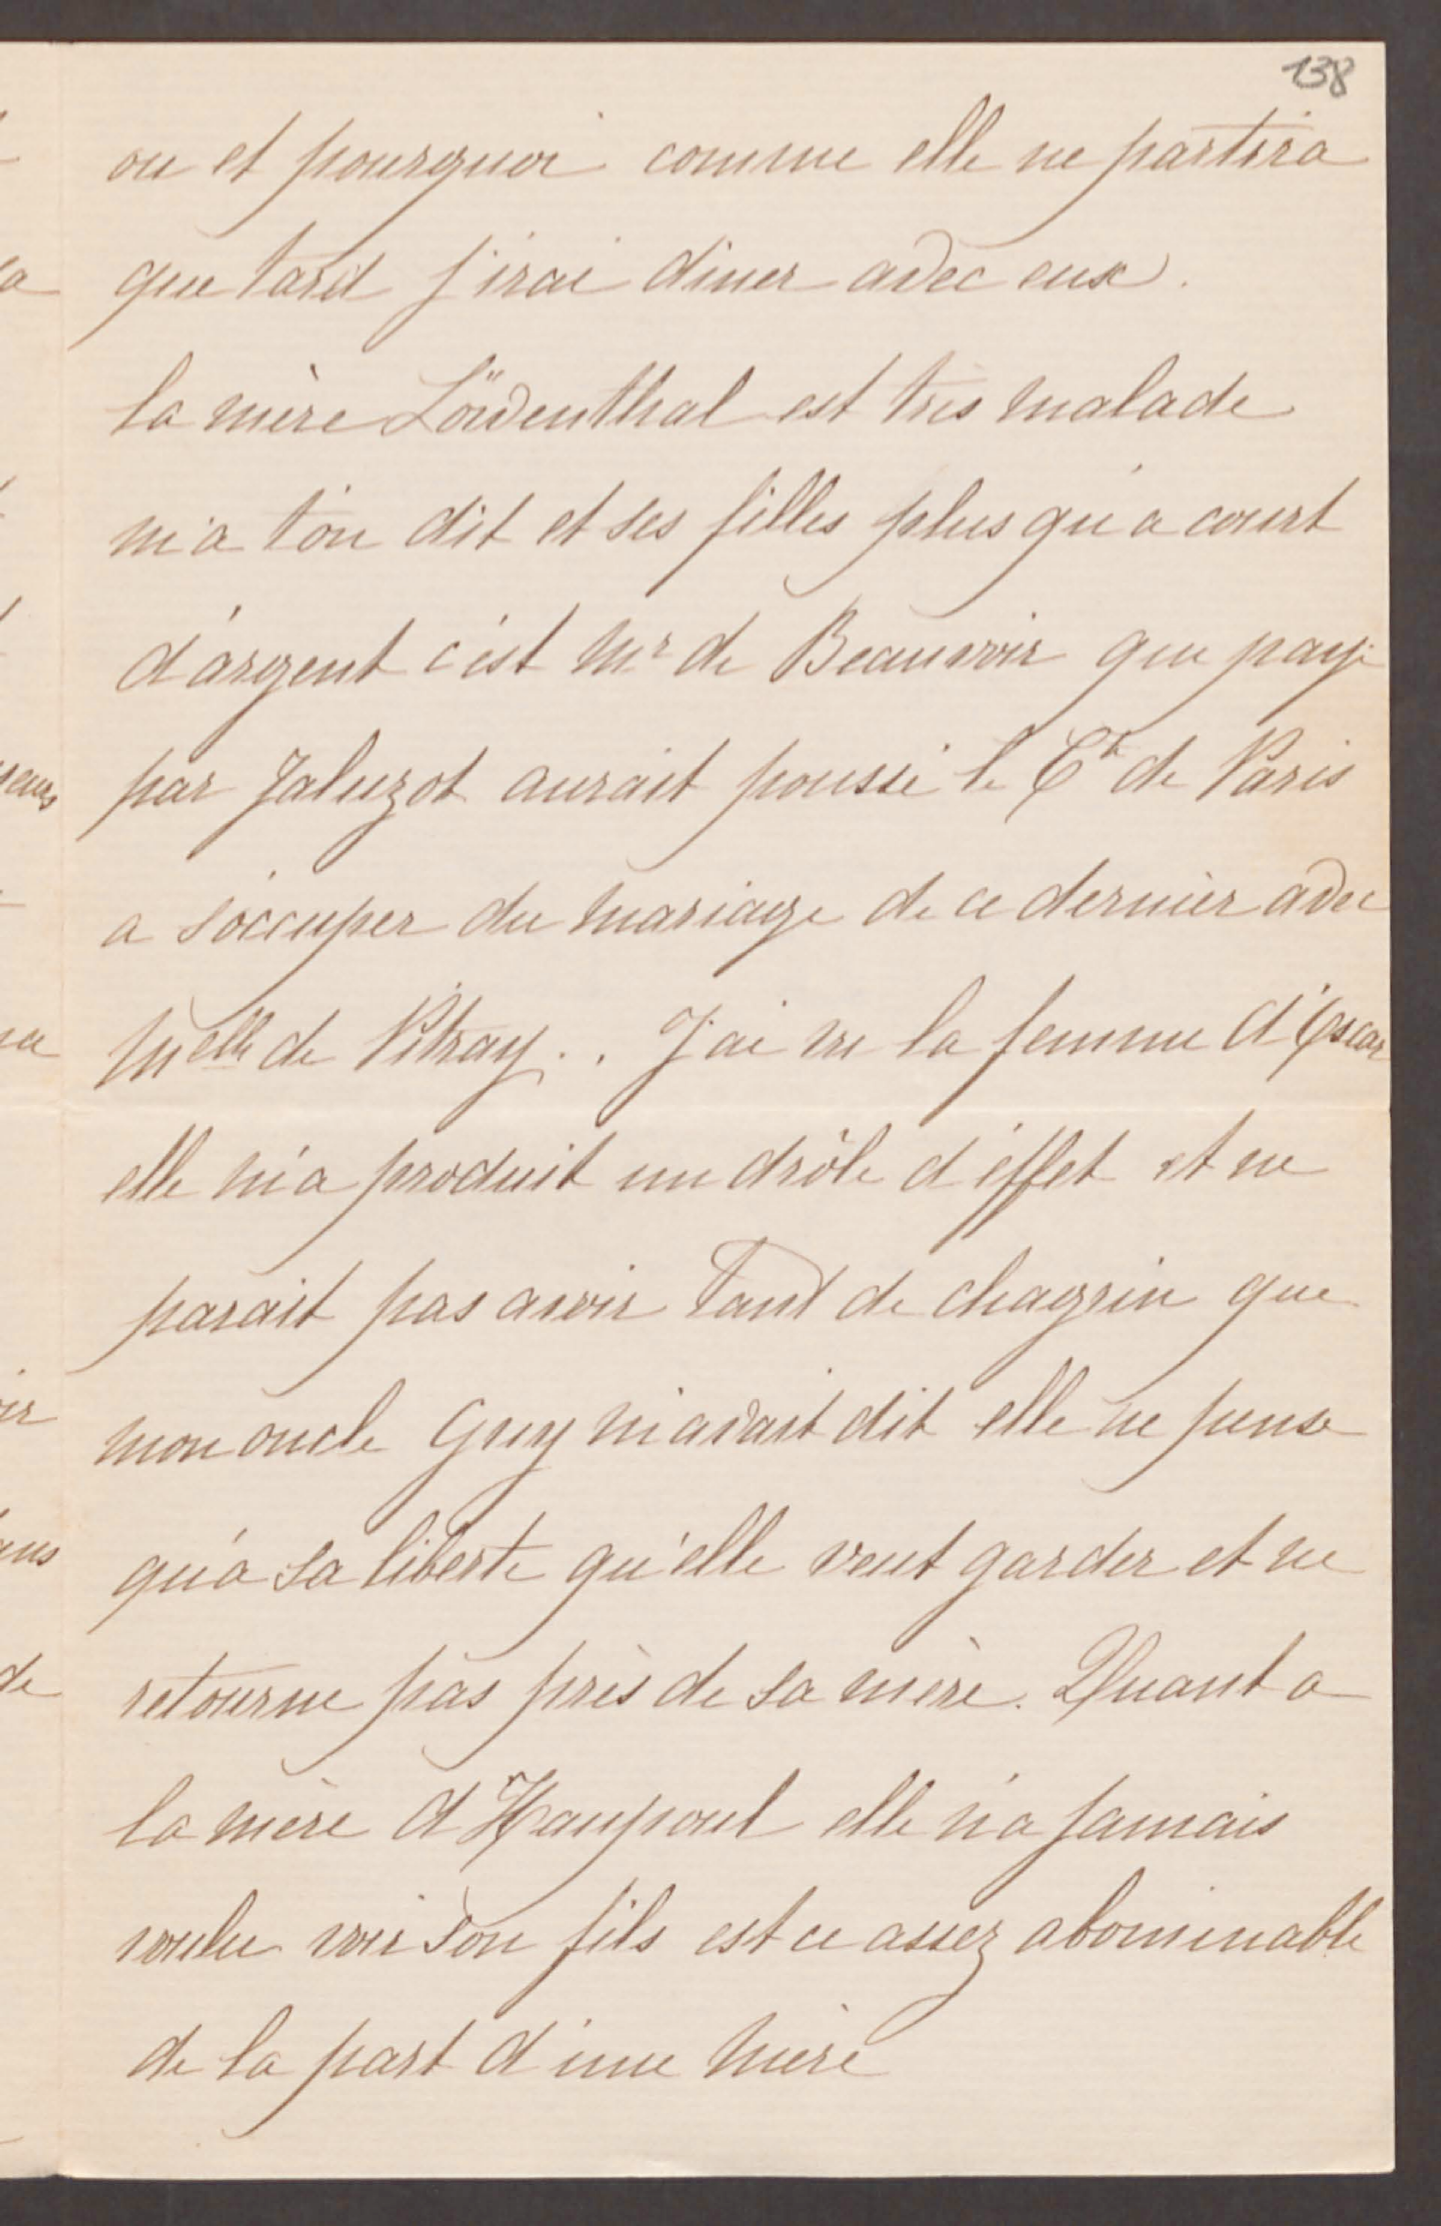 138
ou et pourquoi comme elle ne partira
que tard j'irai diner avec eux.
la mère Löwenthal est très malade
m'a t'on dit et ses filles plus qu'a court
d'argent c'est Mr de Beauvoir que payé
par Jaluzot aurait poussé le Cte de Paris
a s'occuper du mariage de ce dernier avec
Melle de Pitray.. J'ai vu la femme d'Oscar
elle m'a produit un drôle d'effet et ne
parait pas avoir tant de chagrin que
mon oncle Guy m'avait dit elle ne pense
qu'a sa liberté qu'elle veut garder et ne
retourne pas près de sa mère. Quant a
la mère d'Haupoul elle n'a jamais
voulu voir son fils est ce assez abominable
de la part d'une mère